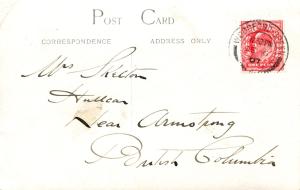 POST CARD
CORRESPONDENCE
ADDRESS ONLY
Mrs Skelton
Hullcar
Near Armstrong
British Columbia